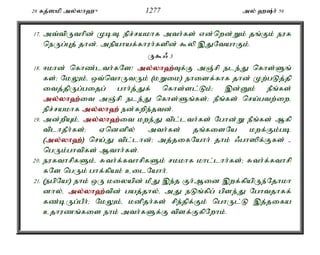 28 கத்ஸமி அல்லாஹு 1277 அல் ஹஷ்ர் 59
17. அவ்விருவரின் முடிவு நிச்சயமாக அவர்கள் என்றென்றும் தங்கும் நரக
நெருப்புத் தான். அநியாயக்காரர்களின் கூலி இதுவேயாகும்.
ருகூஃ 3
18. ஈமான் கொண்டவர்களே! அல்லாஹ்வுக்கு அஞ்சி நடந்து கொள்ளுங்
கள்; மேலும், ஒவ்வொருவரும் (மறுமை) நாளைக்காக தான் முற்படுத்தி
வைத்திருப்பதைப் பார்த்துக் கொள்ளட்டும்; இன்னும் நீங்கள்
அல்லாஹ்வை அஞ்சி நடந்து கொள்ளுங்கள்; நீங்கள் செய்பவற்றை
நிச்சயமாக அல்லாஹ் நன்கறிந்தவன்.
19. அன்றியும், அல்லாஹ்வை மறந்து விட்டவர்கள் போன்று நீங்கள் ஆகி
விடாதீர்கள்; ஏனெனில் அவர்கள் தங்களையே மறக்கும்படி
(அல்லாஹ்) செய்து விட்டான்; அத்தகையோர் தாம் ஃபாஸிக்குகள் -
பெரும்பாவிகள் ஆவார்கள்.
20. நரகவாசிகளும், சுவர்க்கவாசிகளும் சமமாக மாட்டார்கள்; சுவர்க்கவாசி
களே பெரும் பாக்கியம் உடையோர்.
21. (நபியே!) நாம் ஒரு மலையின் மீது இந்த குர்ஆனை இறக்கியிருந்தோமா
னால், அல்லாஹ்வின் பயத்தால், அது நடுங்கிப் பிளந்து போவதாகக்
கண்டிருப்பீர்; மேலும், மனிதர்கள் சிந்திக்கும் பொருட்டு இத்தகைய
உதாரணங்களை நாம் அவர்களுக்கு விளக்குகிறோம்.